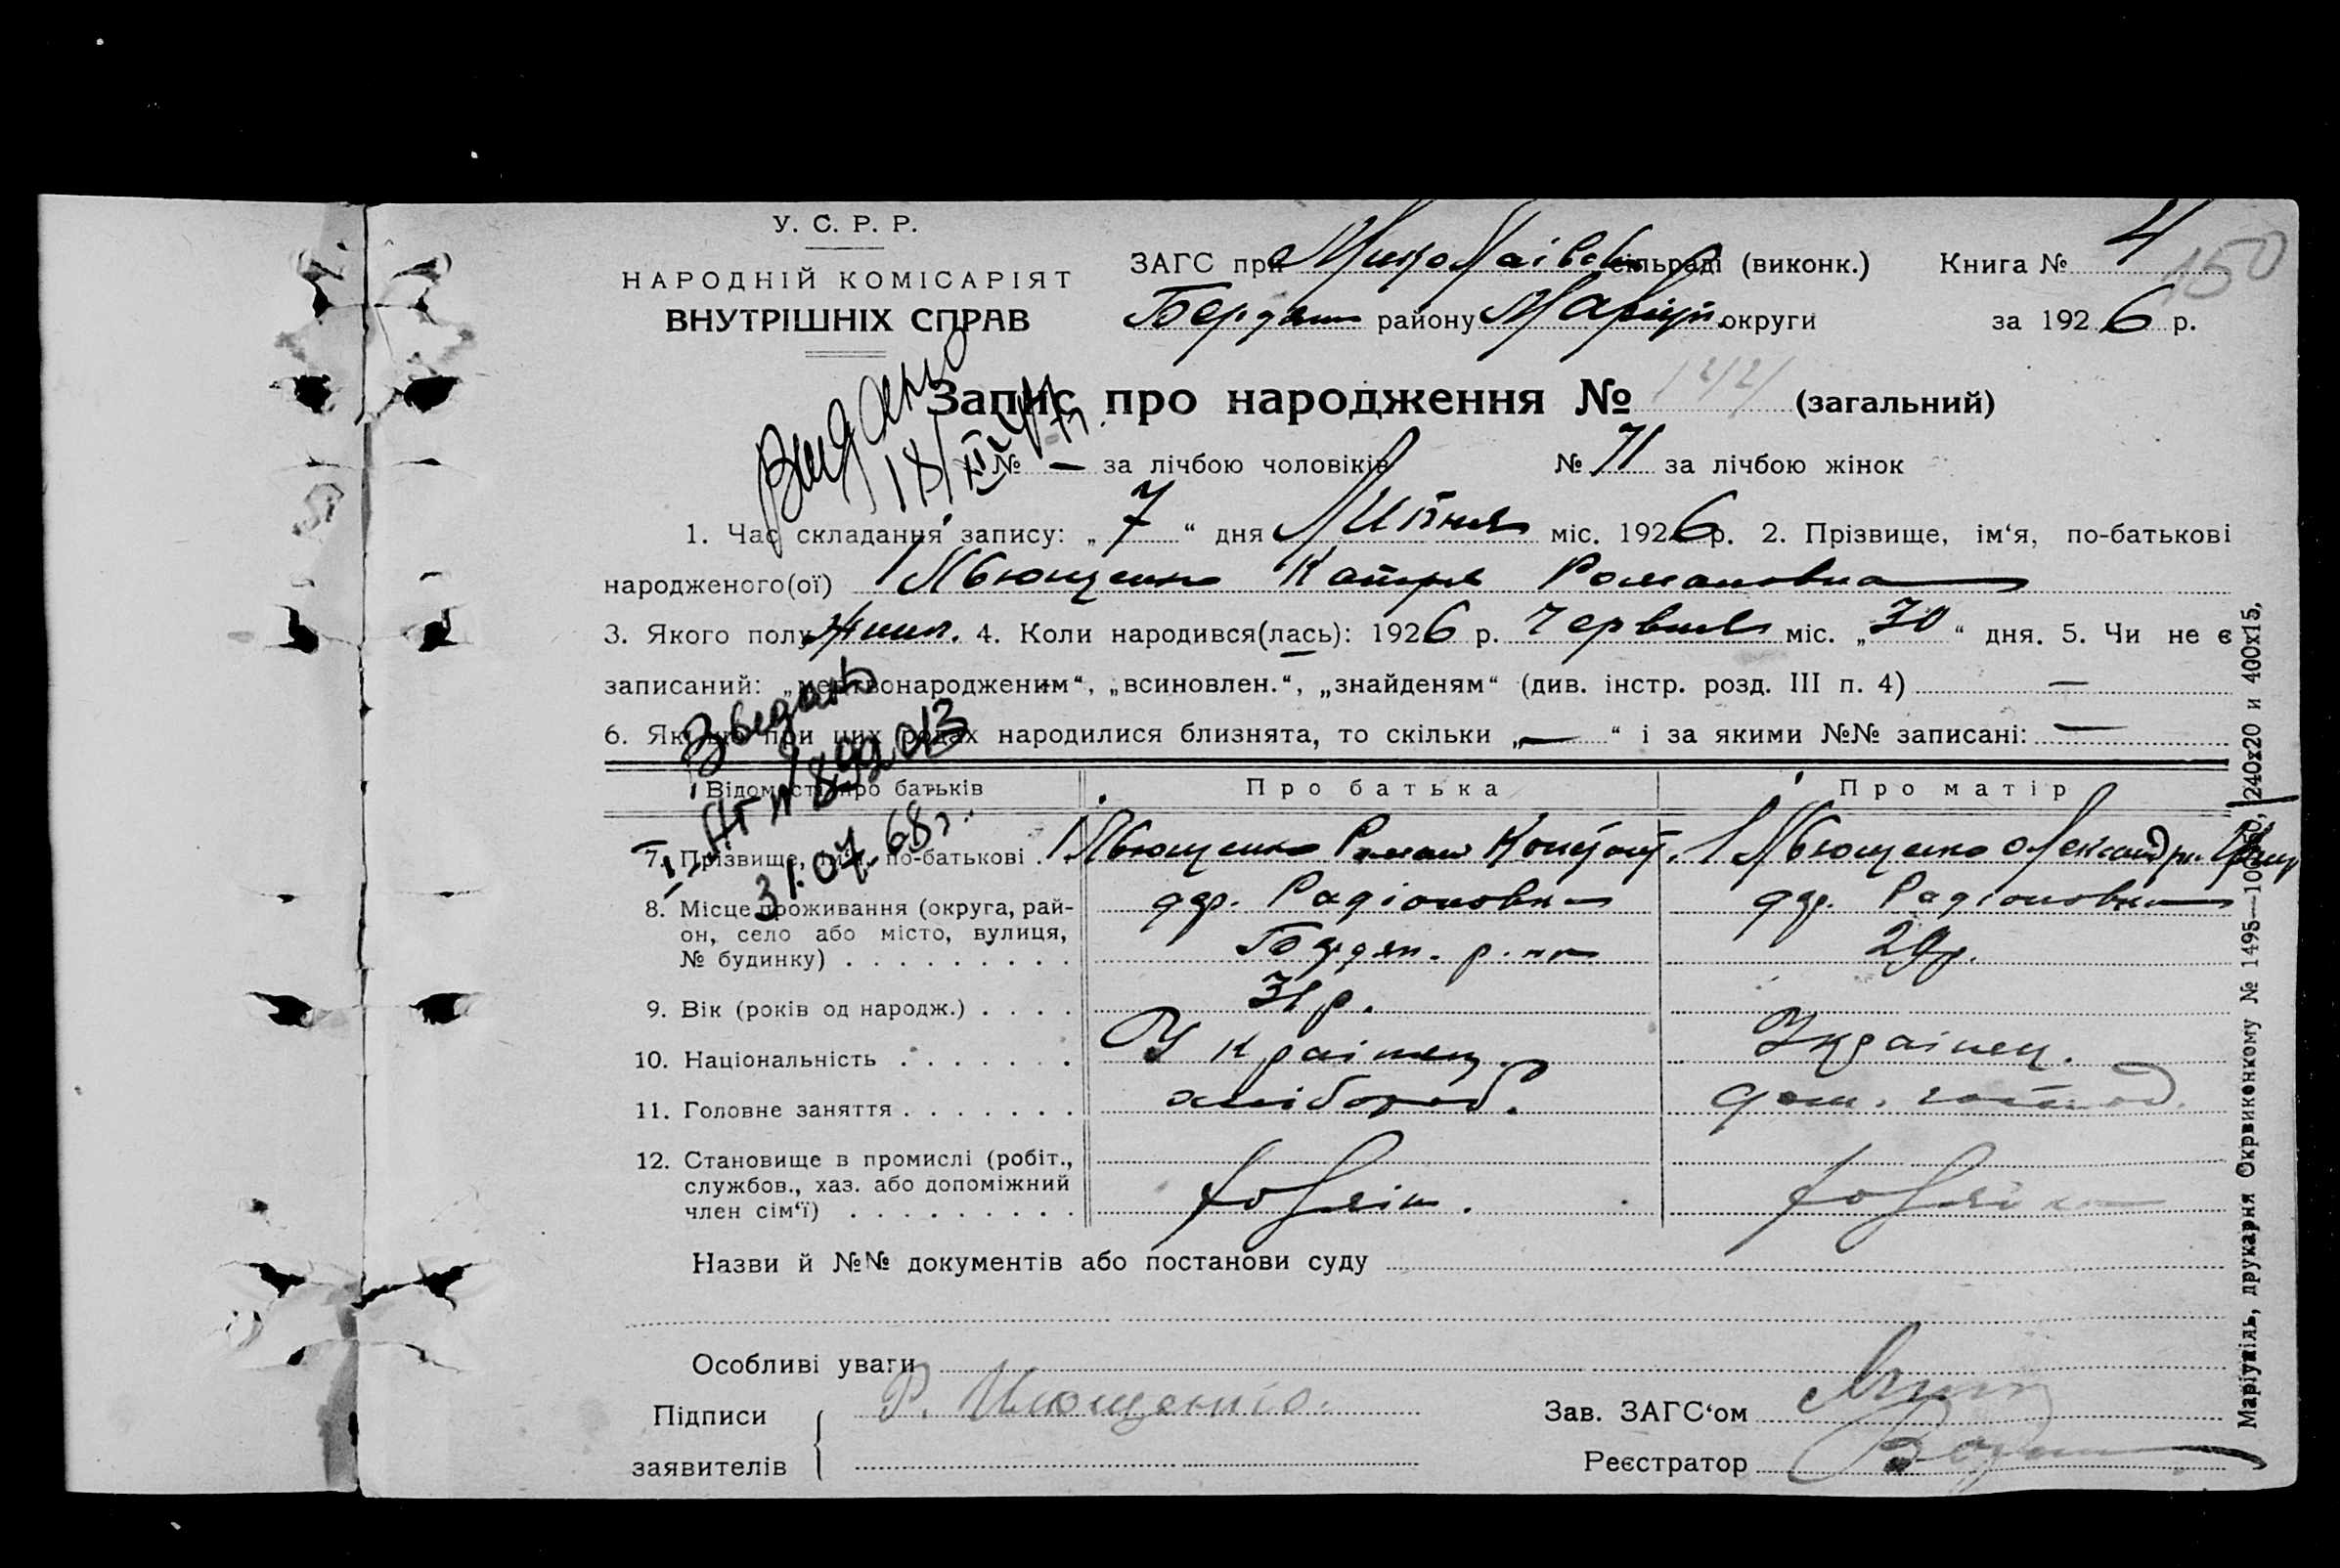 У. С. Р. Р.
НАРОДНІЙ КОМІСАРІЯТ
ВНУТРІШНІХ СПРАВ
ЗАГС при Миколаівськ сільраді (виконк.) Книга № 4
150
Бердян району Маріуп. округи за 1926 р.
Запис про народження № (загальний)
№ — за лічбою чоловіків № 71 за лічбою жінок
Видано
1. Час складання запису: „7“ дня Липня міс. 1926 р. 2. Прізвище, ім‘я, по-батькові
народженого(ої) Катря Романовна
3. Якого полу жіноч. 4. Коли народився(лась): 1926 р. Червня міс. „30“ дня. 5. Чи не є
записаний: „мертвонародженим“, „всиновлен.“, „знайденям“ (див. інстр. розд. III п. 4) —
6. Якщо при цих родах народилися близнята, то скільки „—“ і за якими №№ записані: —
31.07.68г.
Відомості про батьків Про батька Про матір
7. Прізвище, ім‘я, по-батькові . Роман Александра
8. Місце проживання (округа, рай-
он, село або місто, вулиця,
№ будинку) . . . . . . . . .
дер. Радіоновка
Бердян. р.
дер. Радіоновка
29р.
9. Вік (років од народж.) . . . . 31р.
10. Національність . . . . . . . Украінец. Украінец.
11. Головне заняття . . . . . . . хлібороб. дом. господ.
12. Становище в промислі (робіт.,
службов., хаз. або допоміжний
член сім‘ї) . . . . . . . . .
Назви й №№ документів або постанови суду
Особливі уваги
Підписи
заявителів
Р. Илющенко.
Зав. ЗАГС‘ом
Реєстратор
Маріупіль, друкарня Окрвиконкому № 1495—10050, 240x20 и 400x15.